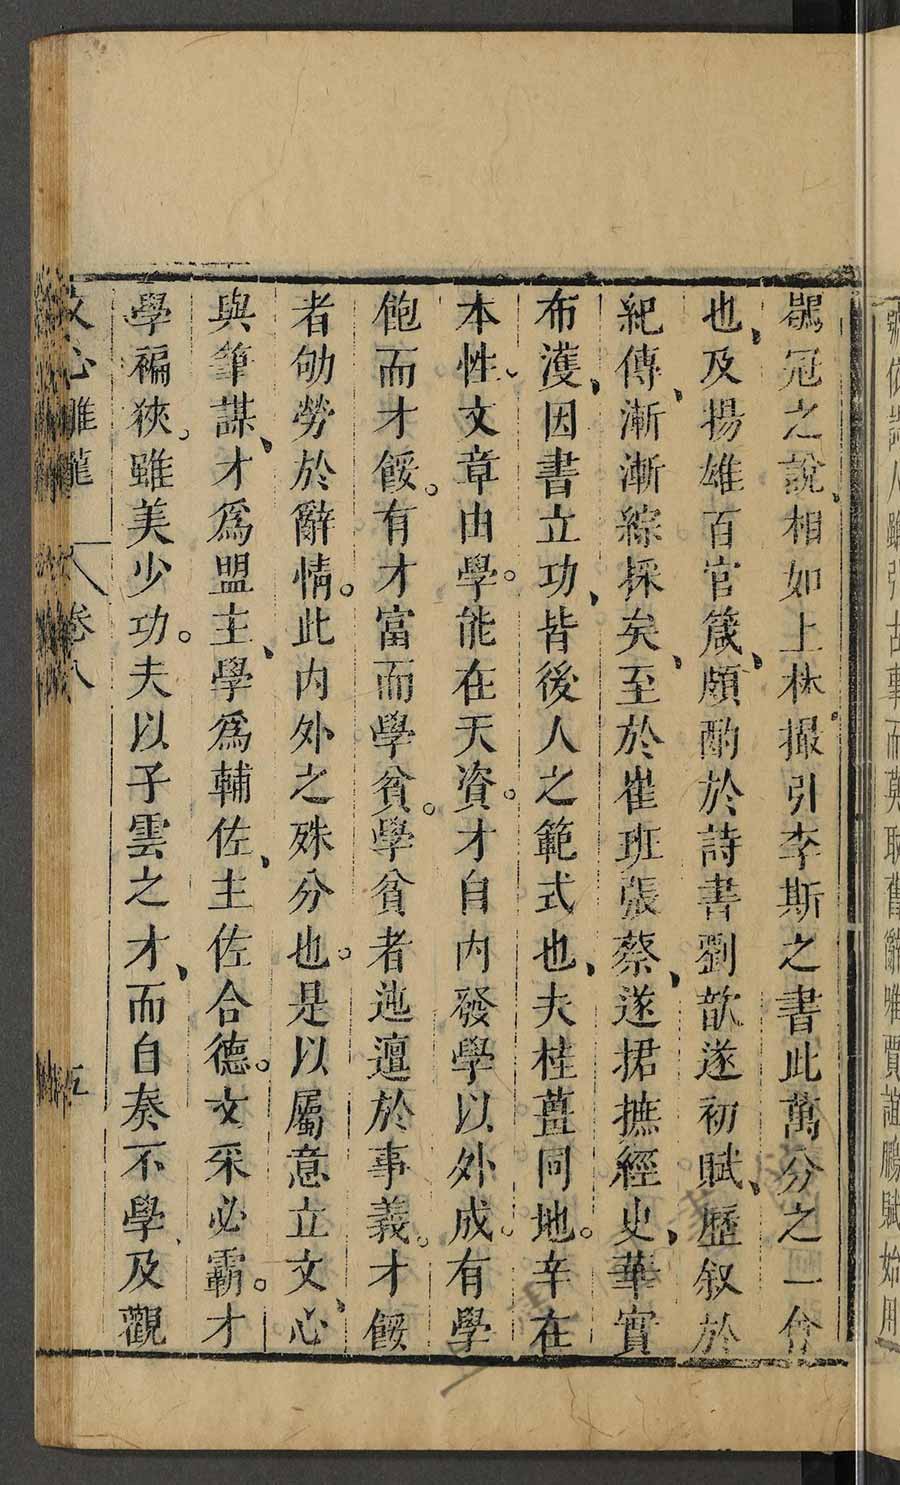 號依詩人雖引古事而莫取舊辭唯賈誼鵩賦始用
鶡冠之說相如上林撮引李斯之書此萬分之一會
也及揚雄百官箴頗酌於詩書劉歆遂初賦歷叙於
紀傳漸漸綜採矣至於崔班張蔡遂捃摭經史華實
布濩因書立功皆後人之範式也夫桂薑同地辛在
本性文章由學能在天資才自內發學以外成有學
飽而才餒有才富而學貧學貧者迍邅於事義才餒
者劬勞於辭情此內外之殊分也是以屬意立文心
與筆謀才爲盟主學爲輔佐主佐合德文采必霸才
學褊狹雖美少功夫以子雲之才而自奏不學及觀
文心雕龍 卷八 五